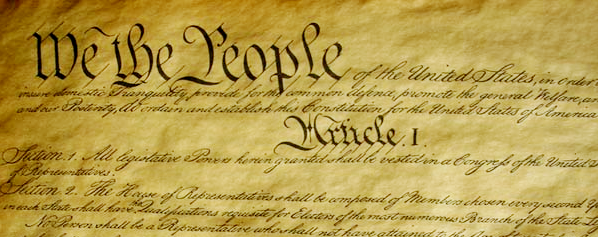 We the People of the United States, in order
insure domestic Tranquility, provide for the common defence, promote the general Welfare, an
and our Posterity, do ordain and establish this Constitution for the United States of America
Article. I.
Section. 1. All legislative Powers herein granted shall be vested in a Congress of the United
of Representatives.
Section. 2. The House of Representatives shall be composed of Members chosen every second Y
in each State shall have the Qualifications requisite for Electors of the most numerous Branch of the State L
No Person shall be a Representative who shall not have attained to the